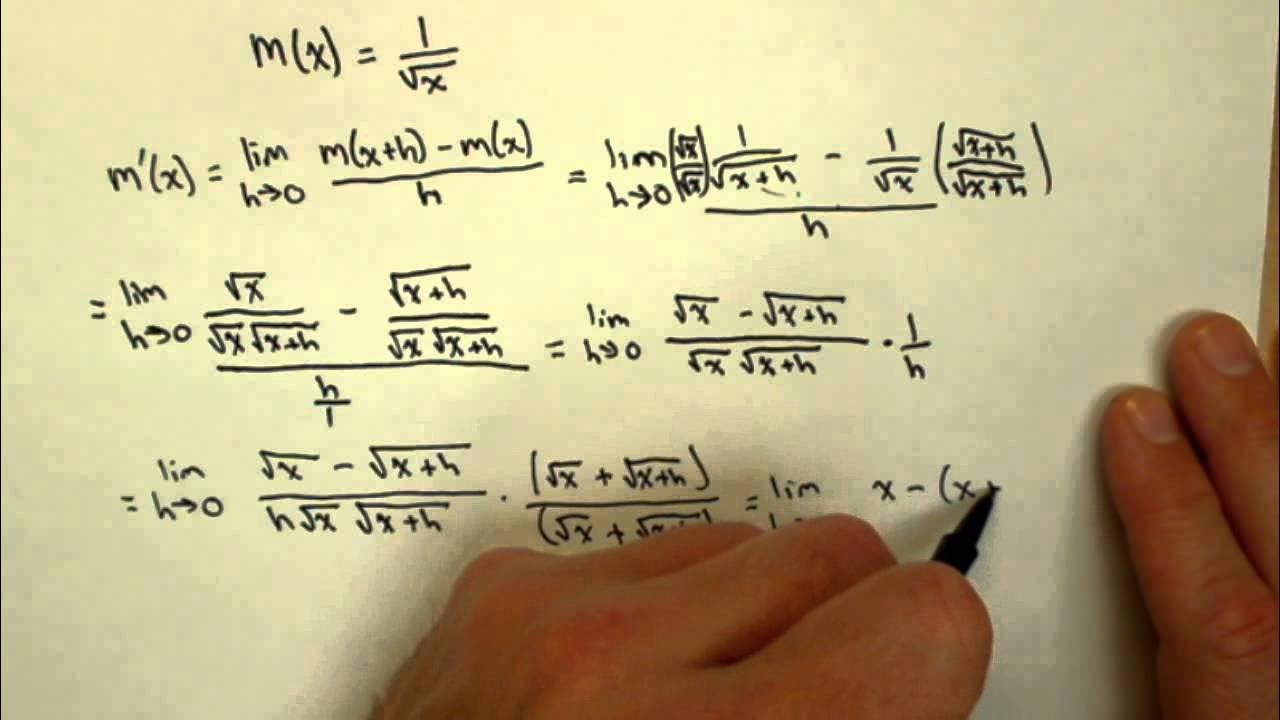 m(x) = 1/√x
m'(x) = lim h→0 (m(x+h) − m(x))/h = lim h→0 ((√x/√x) 1/√(x+h) − 1/√x (√(x+h)/√(x+h)))/h
= lim h→0 (√x/(√x √(x+h)) − √(x+h)/(√x √(x+h)))/(h/1) = lim h→0 (√x − √(x+h))/(√x √(x+h)) · 1/h
= lim h→0 (√x − √(x+h))/(h√x √(x+h)) · (√x + √(x+h))/(√x + √(x+h)) = lim x − (x +